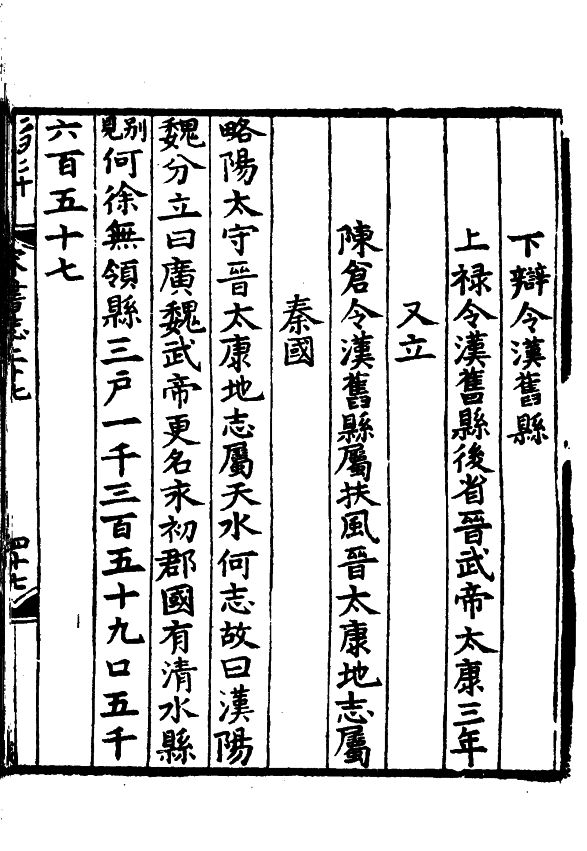 下辯令漢舊縣
上禄令漢舊縣後省晉武帝太康三年
又立
陳倉令漢舊縣屬扶風晉太康地志屬
秦國
略陽太守晉太康地志屬天水何志故曰漢陽
魏分立曰廣魏武帝更名永初郡國有清水縣
别見何徐無領縣三户一千三百五十九口五千
六百五十七
四十七